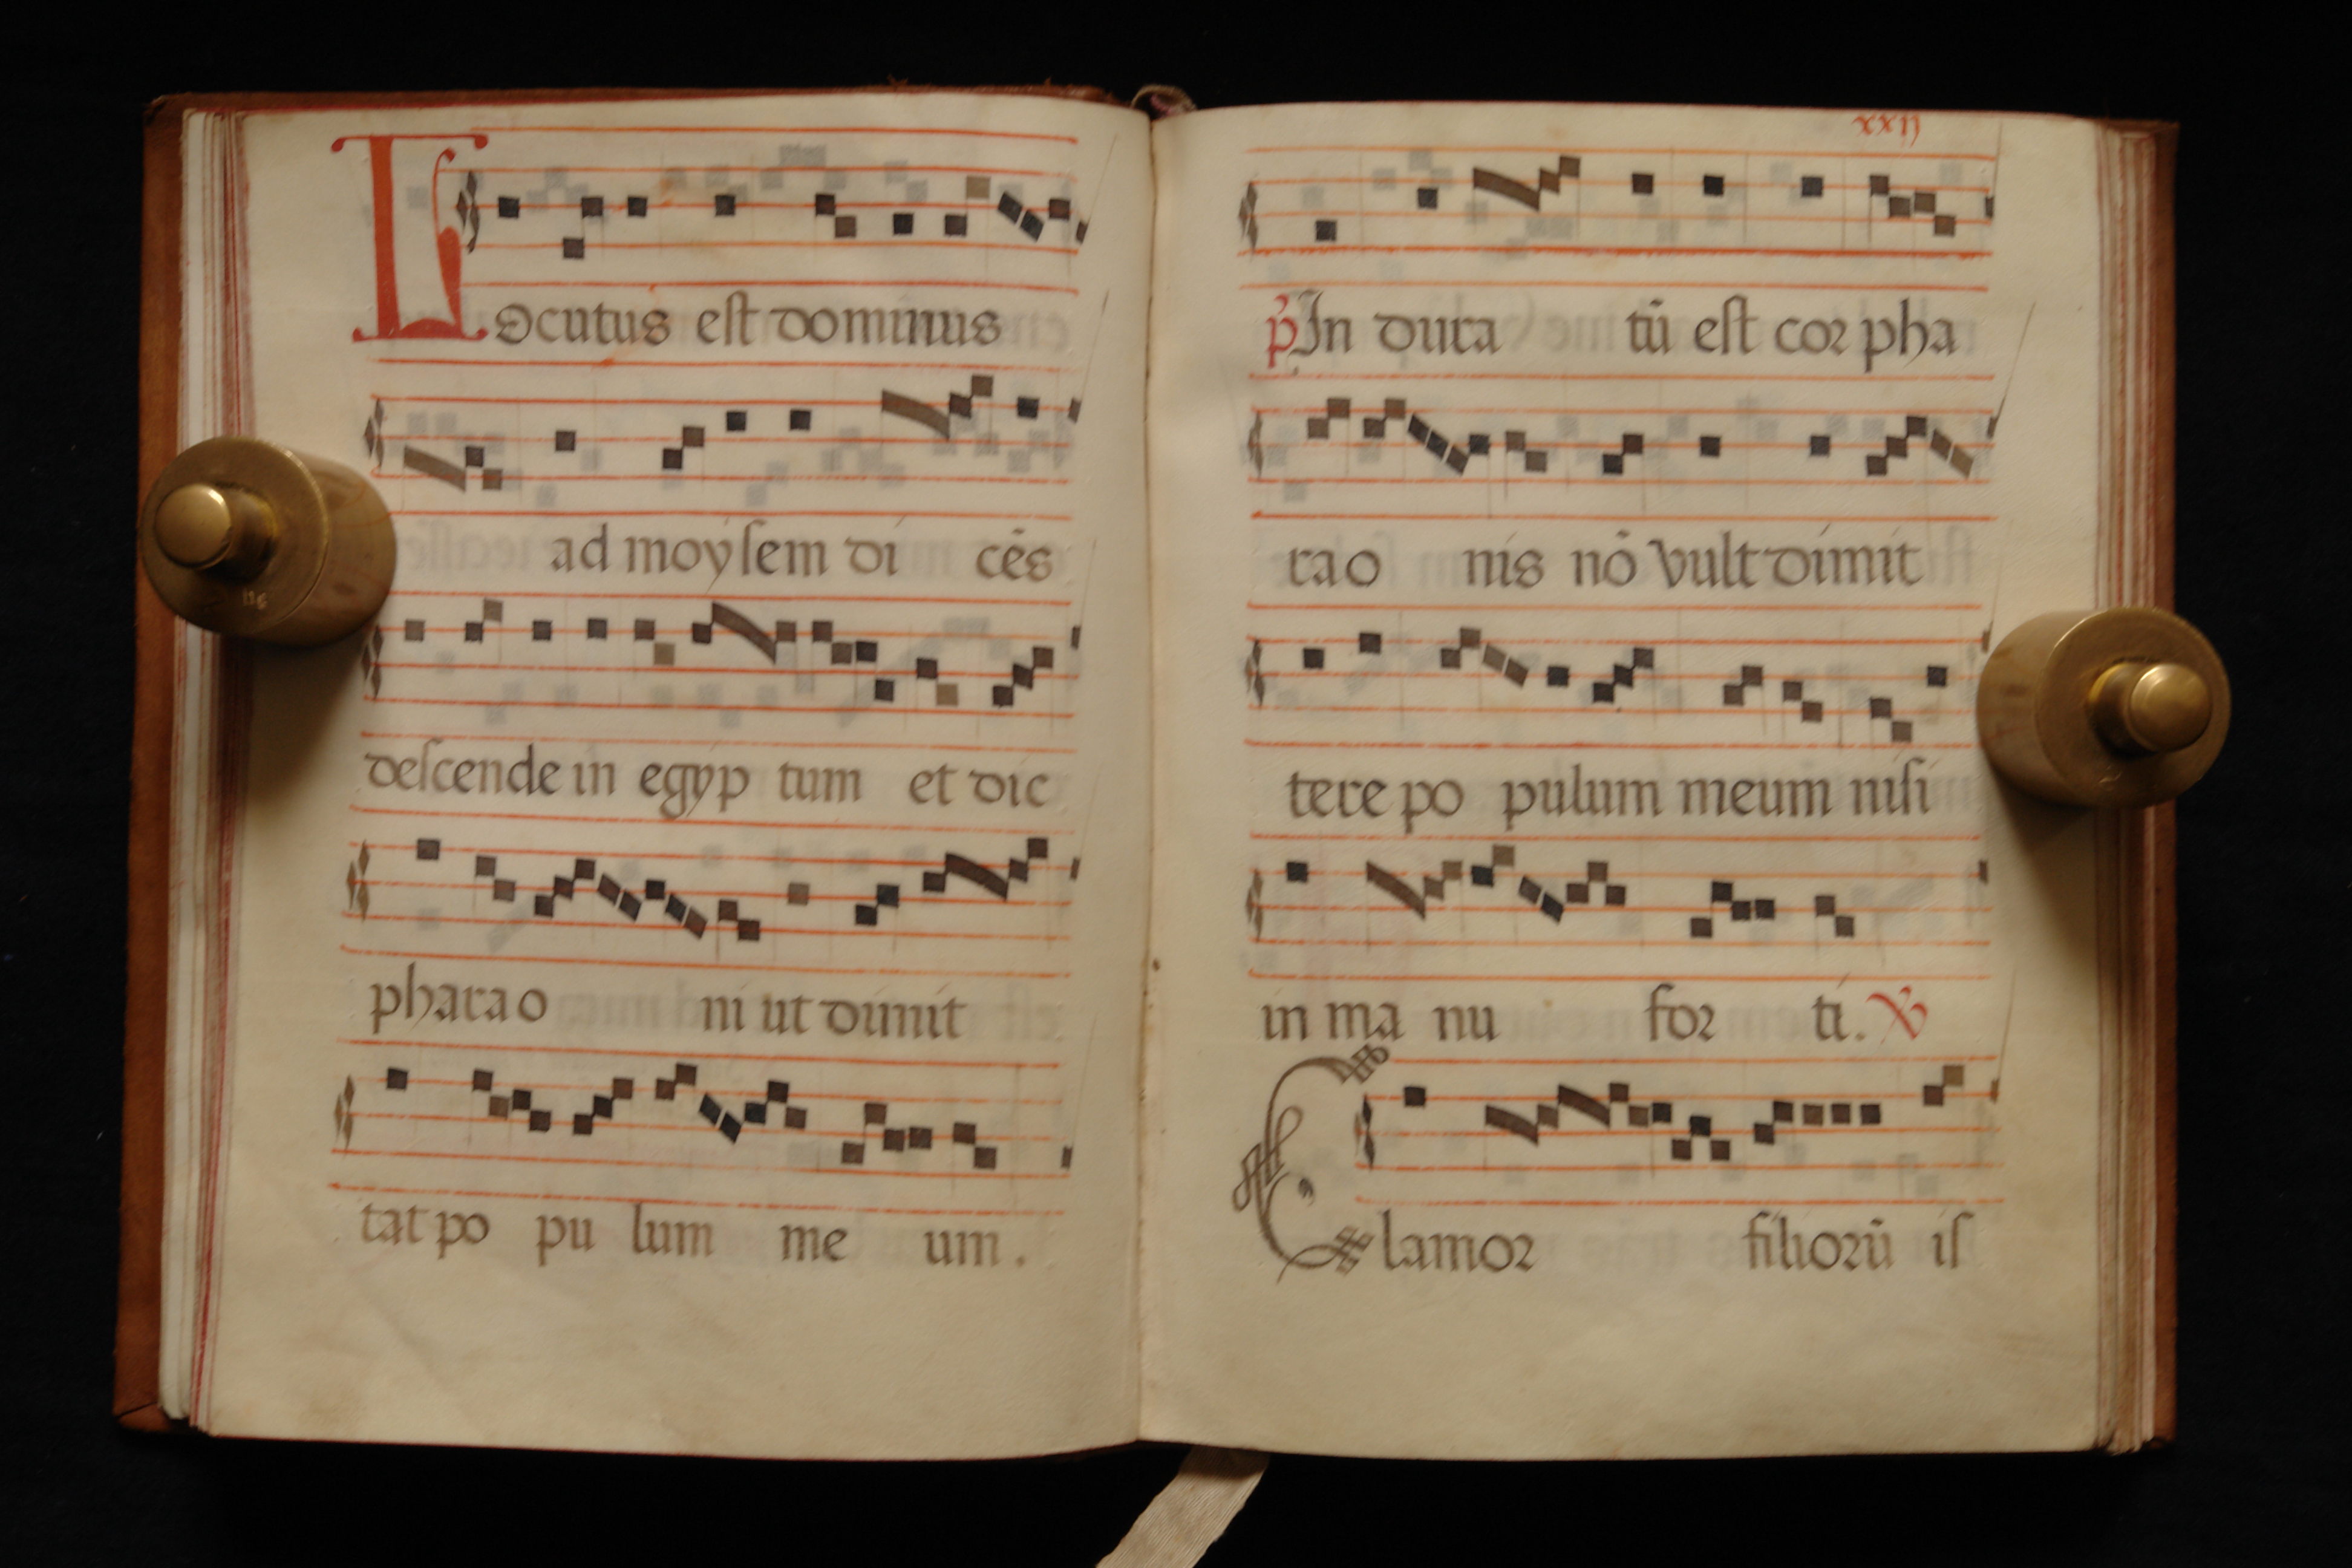 Locutus est dominus
ad moysem di cẽs
descende in egyp tum et dic
pharao ni ut dimit
tat po pu lum me um.
xxij
p̃ In dura tũ est cor pha
rao nis nõ vult dimit
tere po pulum meum nisi
in ma nu for ti. ℣
Clamor filiorũ is